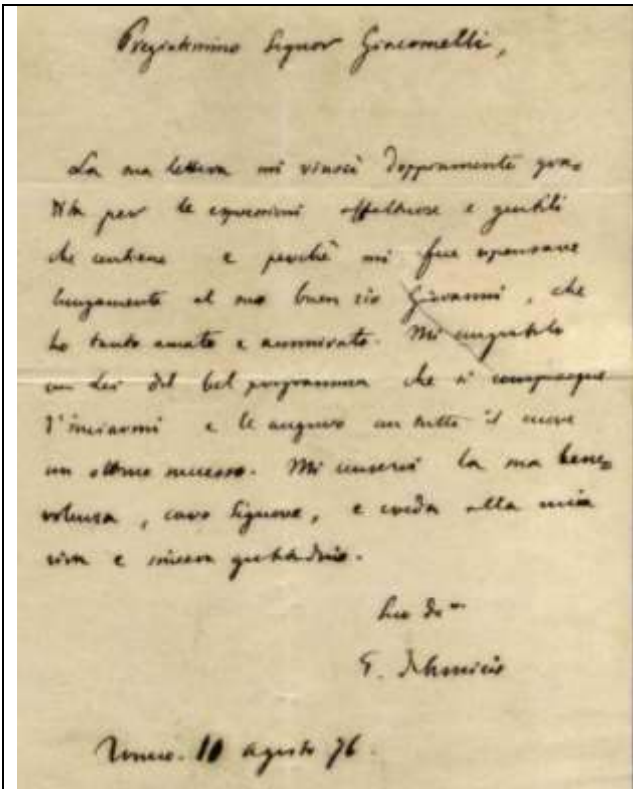 Pregiatissimo Signor Giacomelli,
La sua lettera mi riuscì doppiamente gra=
dita per le espressioni affettuose e gentili
che contiene e perchè mi fece ripensare
lungamente al suo buon zio Giovanni, che
ho tanto amato e ammirato. Mi congratulo
con Lei del bel programma che si compiacque
d'inviarmi e le auguro con tutto il cuore
un ottimo successo. Mi conservi la sua bene=
volenza, caro Signore, e creda alla mia
viva e sincera gratitudine.
Suo
E. De Amicis
Torino. 10 agosto 76.